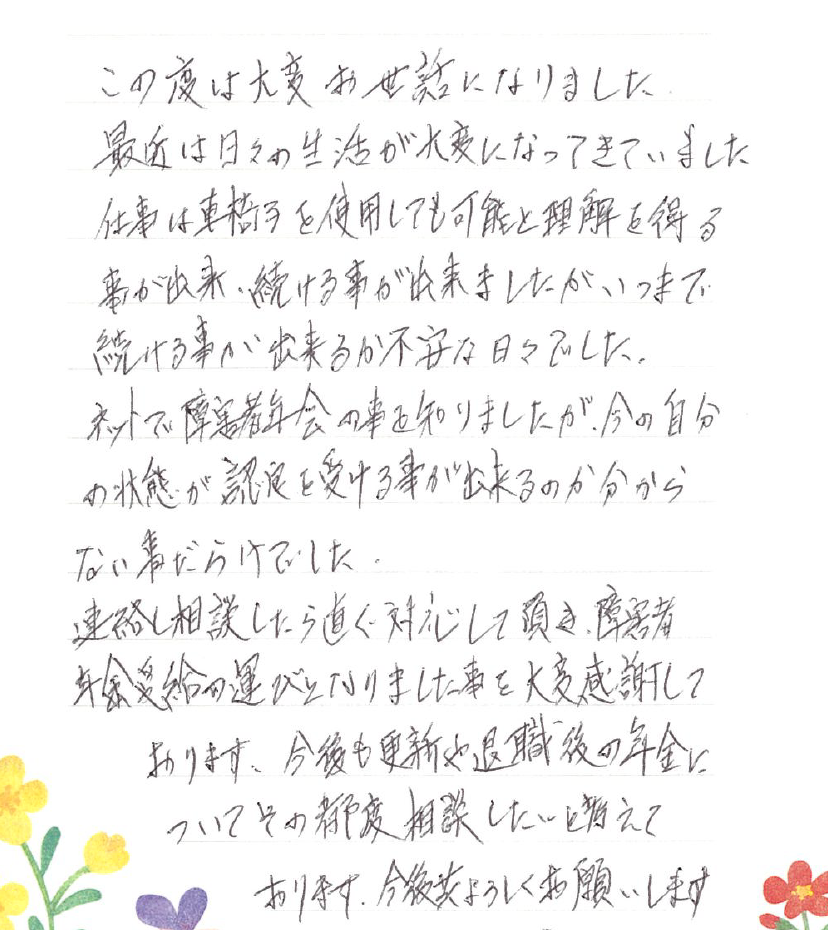 この度は大変お世話になりました.
最近は日々の生活が大変になってきていました
仕事は車椅子を使用しても可能と理解を得る
事が出来、続ける事が出来ましたがいつまで
続ける事が出来るか不安な日々でした.
ネットで障害者年金の事を知りましたが、今の自分
の状態が認定を受ける事が出来るのか分から
ない事だらけでした.
連絡し相談したら直ぐ対応して頂き、障害者
年金受給の運びとなりました事を大変感謝して
おります、今後も更新や退職後の年金に
ついてその都度相談したいと考えて
おります、今後共よろしくお願いします